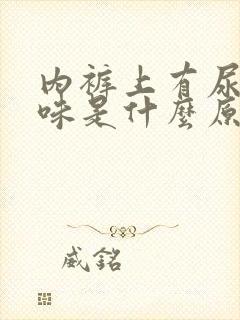 內裤上有尿
味是什麼原
威銘